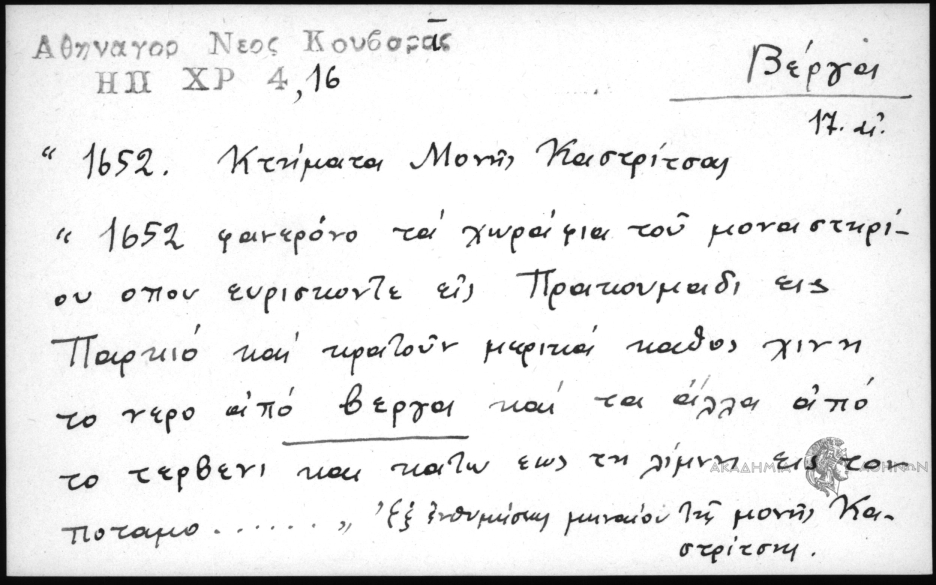 Αθηναγορ Νεος Κουβαρᾶς
ΗΠ ΧΡ 4,16
Βέργα
17. αἰ.
" 1652. Κτήματα Μονῆς Καστρίτσας
" 1652 φανερόνο τά χωράφια τοῦ μοναστηρί-
ου οπου ευρισκοντε εἰς Πρακουμαδι εις
Παρκιό καί κρατοῦν μερικά καθος χινη
το νερο ἀπό βεργα καί τα ἄλλα ἀπό
το τερβενι και κατω εως τη λίμνη εις τον
ποταμο ...... „ Ἐξ ἐνθυμήσεως μηναίου τῆς μονῆς Κα-
στρίτσης.
ΑΚΑΔΗΜΙΑ ΑΘΗΝΩΝ